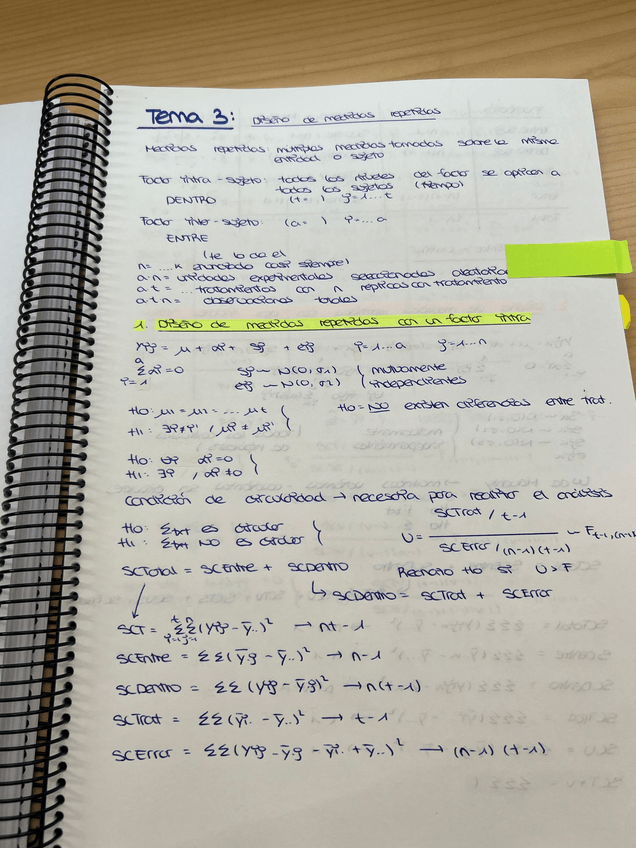 Tema 3: Diseño de medidas repetidas
Medidas repetidas: multiples medidas tomadas sobre la misma
entidad o sujeto
Factor intra-sujeto: todos los niveles del factor se aplican a
todos los sujetos (tiempo)
DENTRO (t= ) j=1...t
Factor inter-sujeto: (a= ) i=1...a
ENTRE
(te lo da el
n= ...k enunciado casi siempre)
a·n= unidades experimentales seleccionadas
a t = ... tratamientos con n replicas con tratamiento
a t n = observaciones totales
1. Diseño de medidas repetidas con un factor intra
Yij = μ + αi + sj + eij i=1...a j=1...n
a
Σαi=0 sj ~ N(0,σ1) mutuamente
i=1 eij ~ N(0,σ2) independientes
H0: μ1 = μ2 = ... μt H0 = NO existen diferencias entre trat.
H1: ∃i≠i' / μi ≠ μi'
H0: ∀i αi=0
H1: ∃i / αi≠0
Condición de circularidad → necesaria para realizar el análisis
H0: Σtxt es circular
H1: Σtxt NO es circular
U = SCTrat / t-1
SCError / (n-1)(t-1) ~ Ft-1,(n-1)
SCTotal = SCEntre + SCDentro Rechazo H0 si U > F
↳ SCDentro = SCTrat + SCError
SCT = ΣΣ(Yij - ȳ..)² → nt-1
SCEntre = ΣΣ(ȳ.j - ȳ..)² → n-1
SCDentro = ΣΣ(Yij - ȳ.j)² → n(t-1)
SCTrat = ΣΣ(ȳi. - ȳ..)² → t-1
SCError = ΣΣ(Yij - ȳ.j - ȳi. + ȳ..)² → (n-1)(t-1)